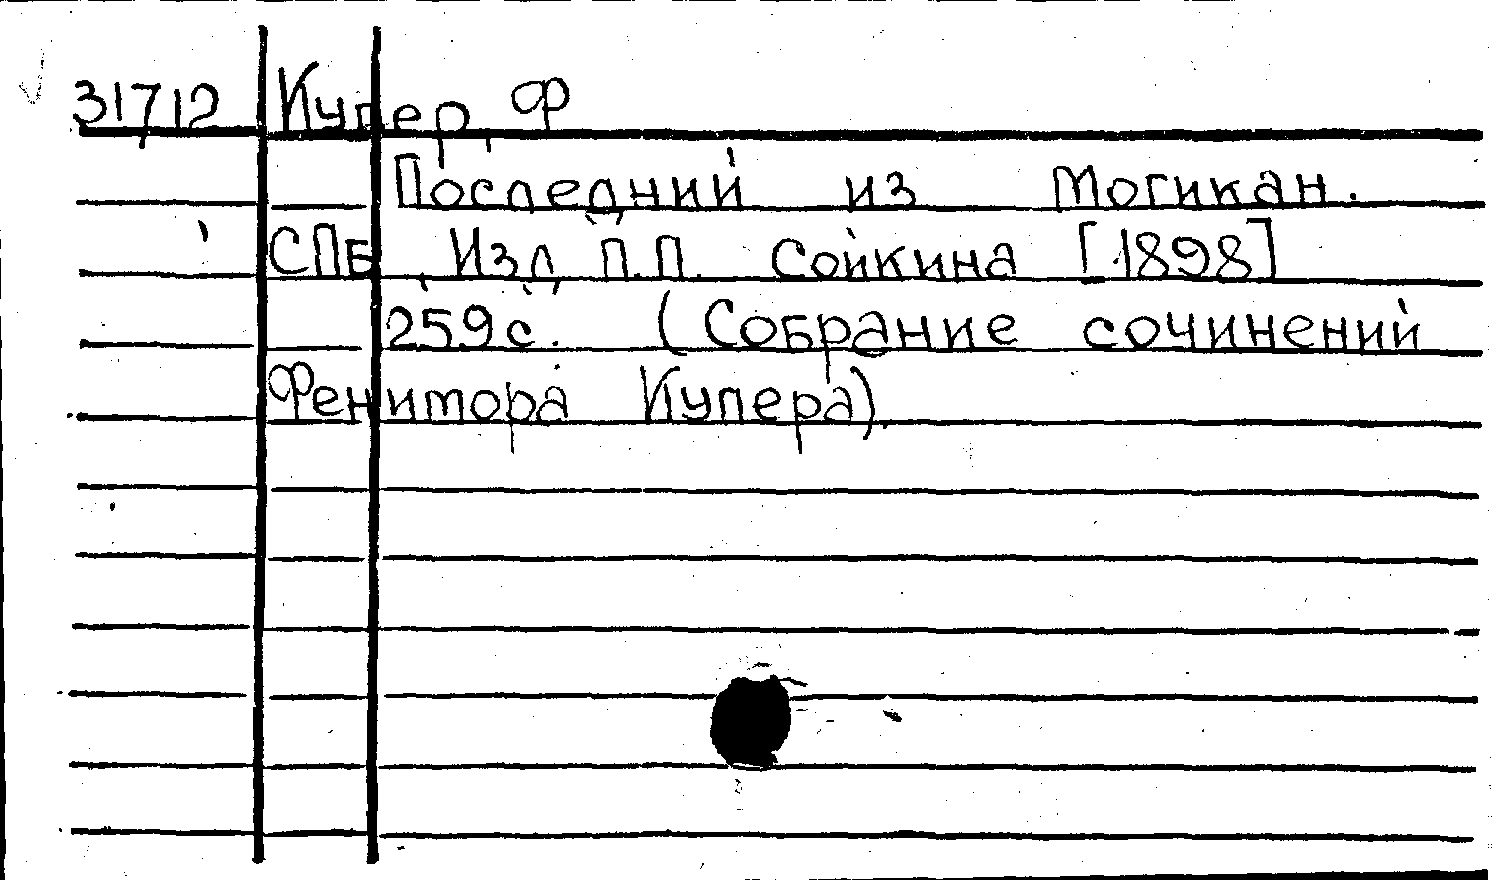 31712 Купер, Ф
Последний из Могикан.
СПБ, Изд. П.П. Сойкина [1898]
259с. (Собрание сочинений
Фенимора Купера)